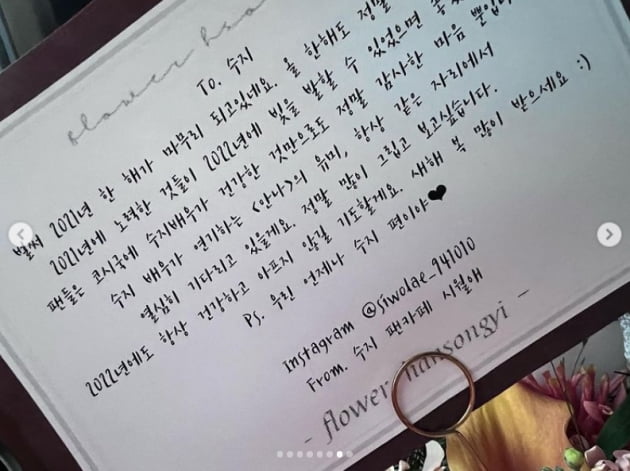 flower
To. 수지
벌써 2021년 한 해가 마무리 되고있네요. 올 한해도 정말
2021년에 노력한 것들이 2022년에 빛을 발할 수 있었으면
팬들은 코시국에 수지배우가 건강한 것만으로도 정말 감사한 마음 뿐입
수지 배우가 연기하는 <안나>의 유미, 항상 같은 자리에서
열심히 기다리고 있을게요. 정말 많이 그립고 보고싶습니다.
2022년에도 항상 건강하고 아프지 않길 기도할게요. 새해 복 많이 받으세요 :)
Ps. 우린 언제나 수지 편이야♥
Instagram @siwolae_941010
From. 수지 팬카페 시월애
- flower hansongyi -